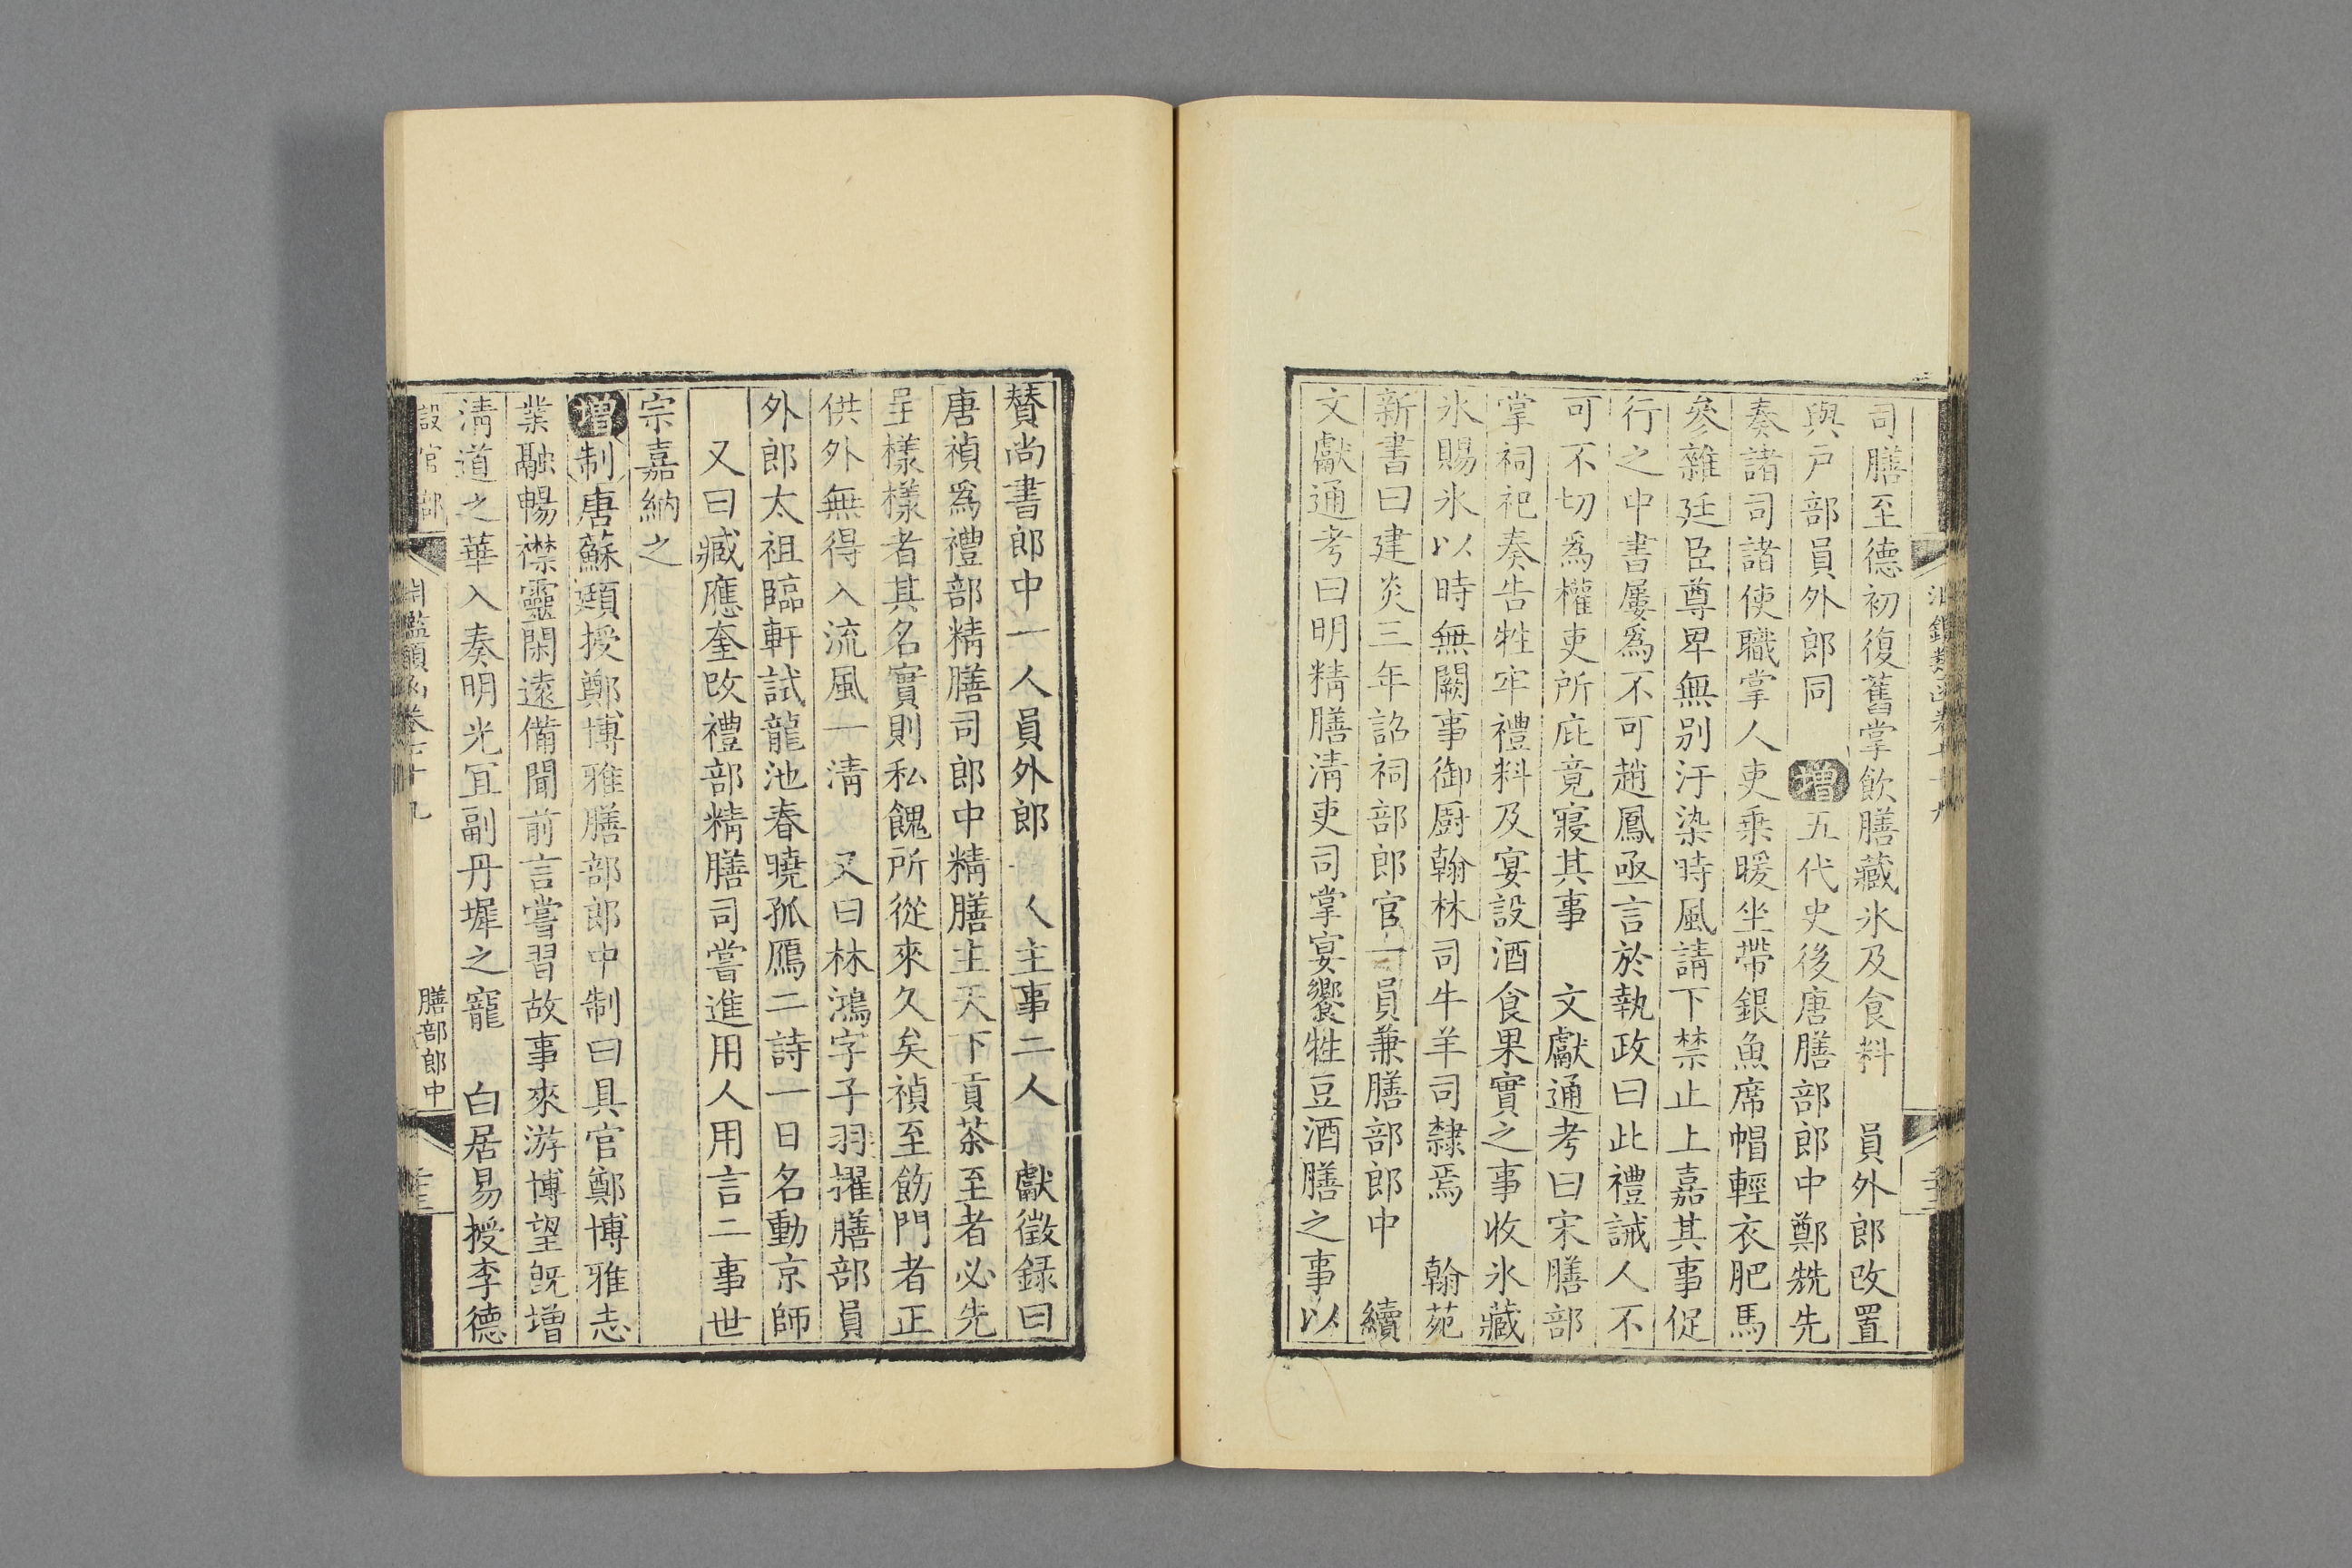 司膳至德初復舊掌飲膳藏氷及食料　員外郎改置
與戸部員外郎同　增五代史後唐膳部郎中鄭兟先
奏諸司諸使職掌人吏乗暖坐帶銀魚席帽輕衣肥馬
參雜廷臣尊卑無别汙染時風請下禁止上嘉其事促
行之中書屢爲不可趙鳳亟言於執政曰此禮誡人不
可不切爲權吏所庇竟寢其事　文獻通考曰宋膳部
掌祠祀奏告牲牢禮料及宴設酒食果實之事收氷藏
氷賜氷以時無闕事御厨翰林司牛羊司隸焉　翰苑
新書曰建炎三年詔祠部郎官一員兼膳部郎中　續
文獻通考曰明精膳清吏司掌宴饗牲豆酒膳之事以
贊尚書郎中一人員外郎一人主事二人　獻徵錄曰
唐禎爲禮部精膳司郎中精膳主天下貢茶至者必先
呈樣樣者其名實則私餽所從來久矣禎至飭門者正
供外無得入流風一清　又曰林鴻字子羽擢膳部員
外郎太祖臨軒試龍池春曉孤鴈二詩一日名動京師
又曰臧應奎改禮部精膳司嘗進用人用言二事世
宗嘉納之
增制唐蘇頲授鄭博雅膳部郎中制曰具官鄭博雅志
業融暢襟靈閑遠備聞前言嘗習故事來游博望旣增
清道之華入奏明光宜副丹墀之寵　白居易授李德
設官部
淵鑑類函卷七十九
膳部郎中